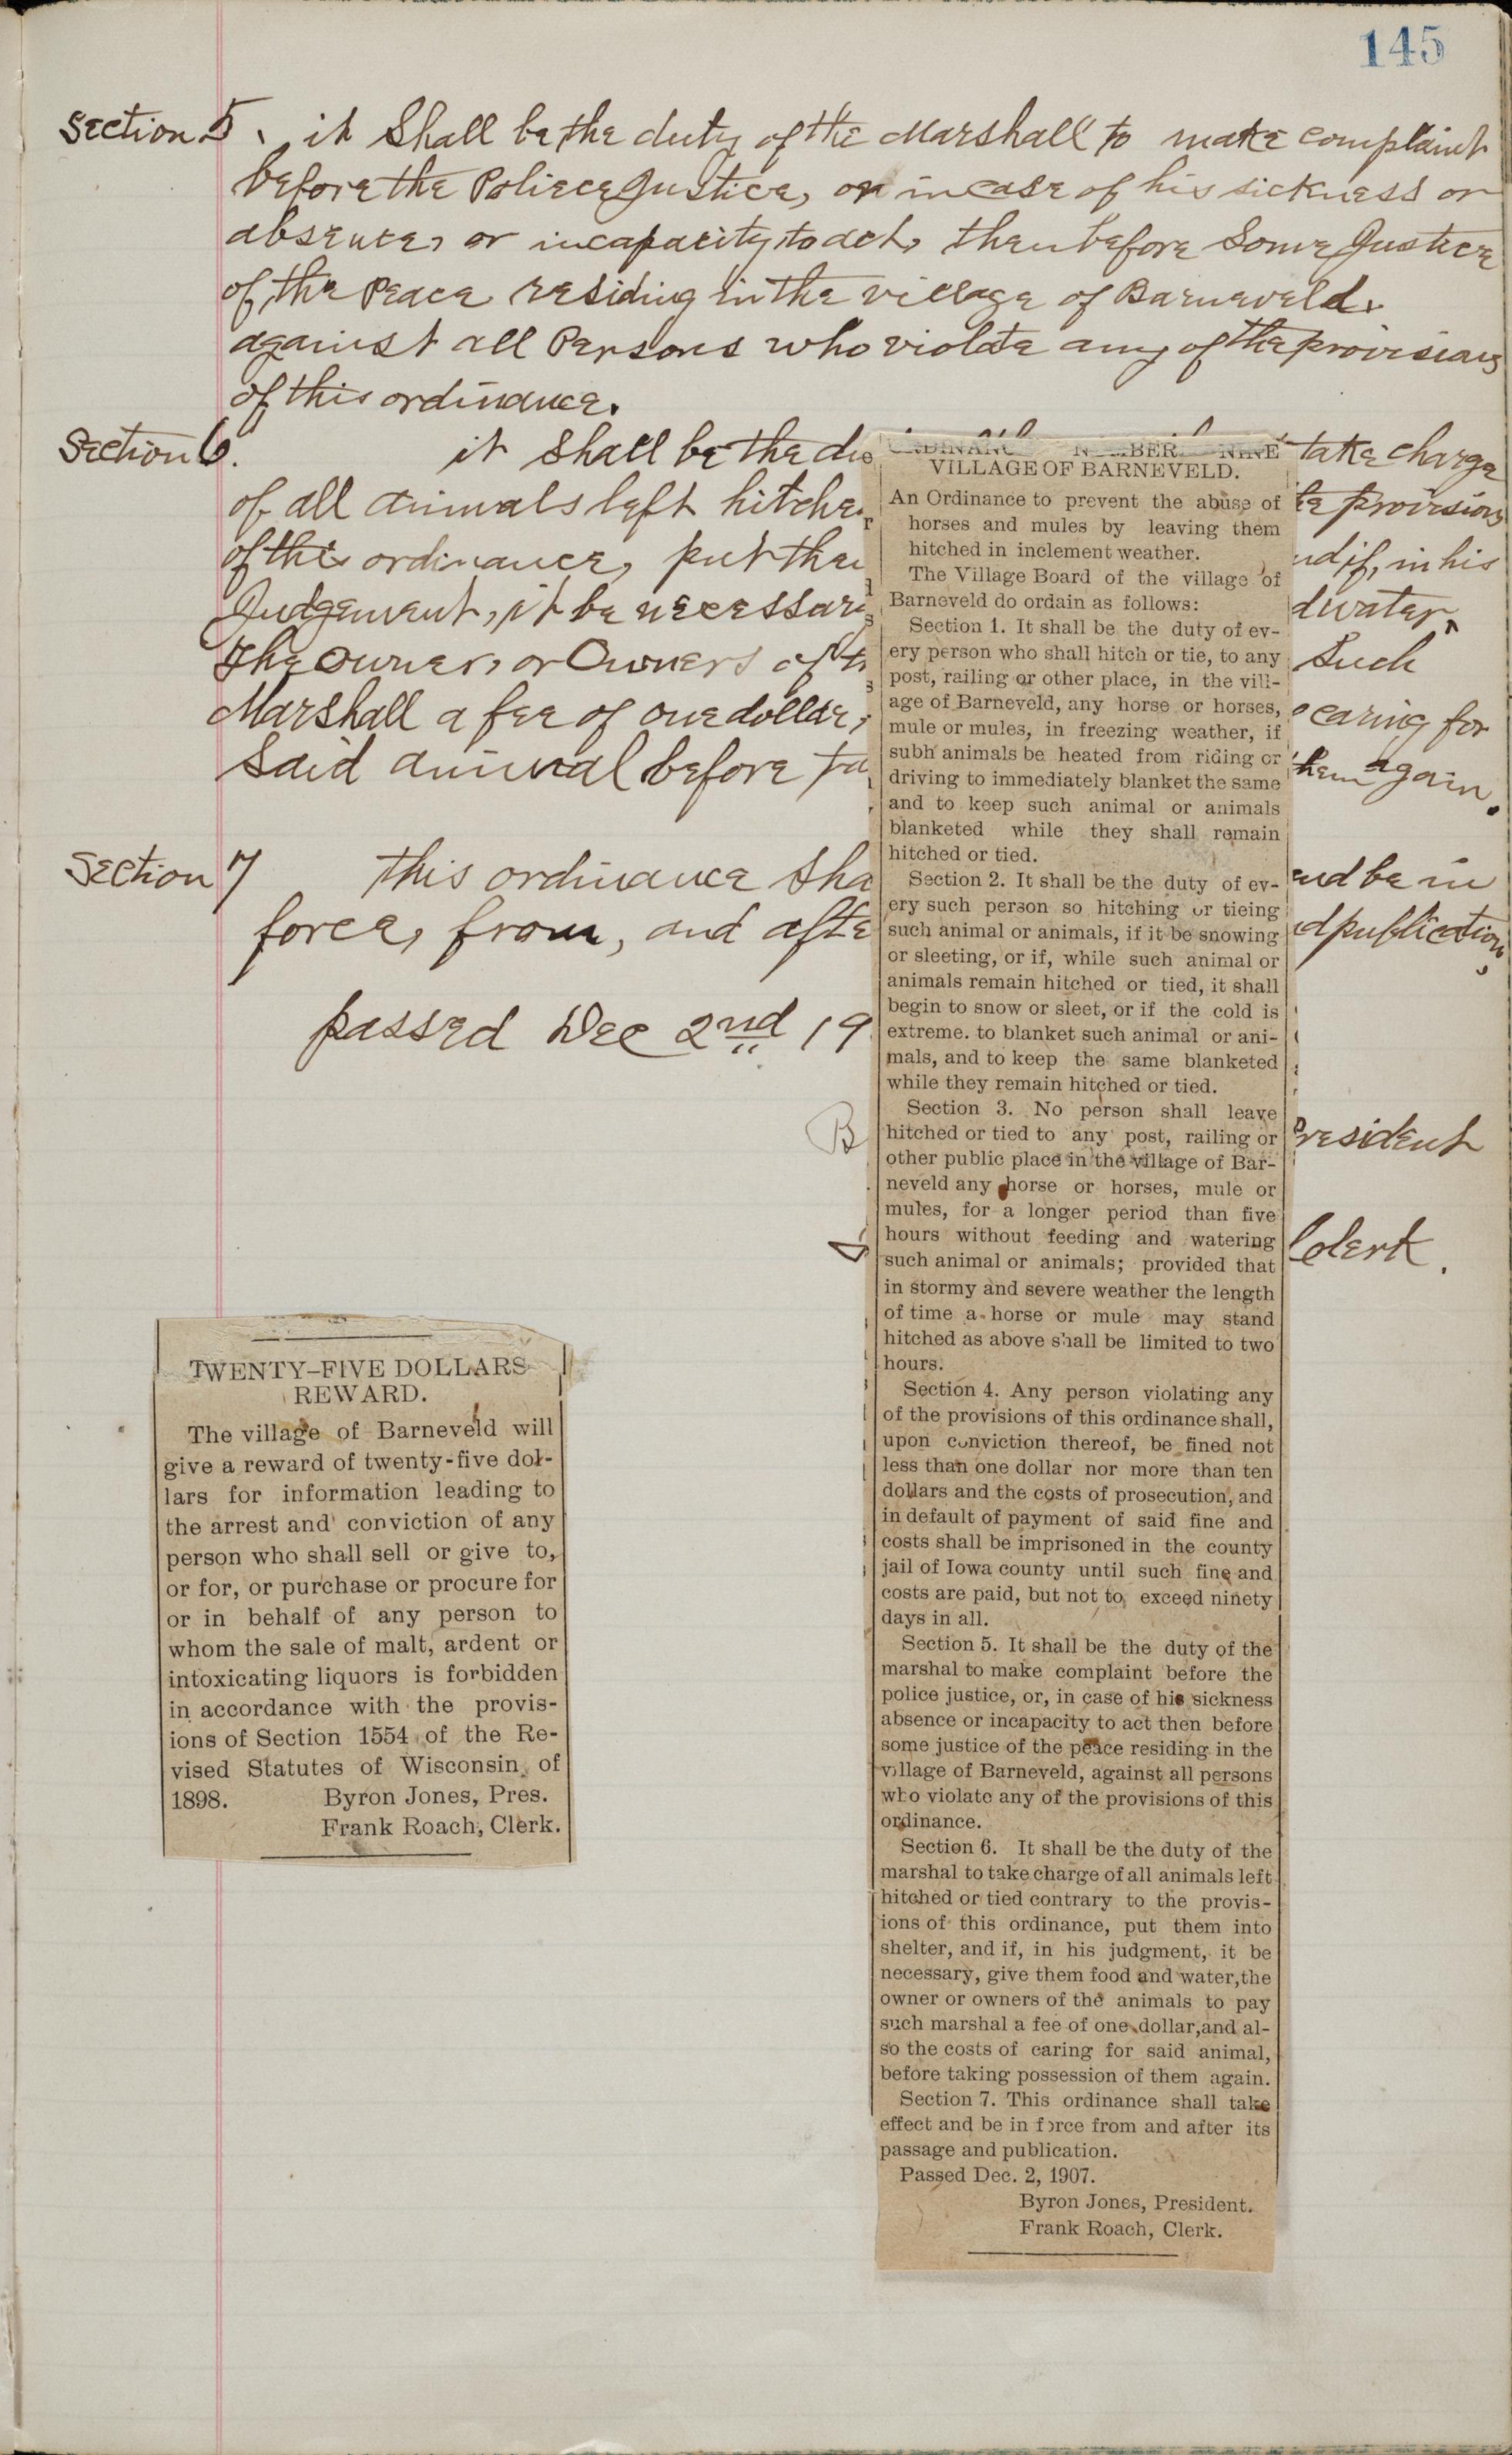 145
Section 5. it Shall be the duty of the Marshall to make complaint
before the Poliece Justice, or in case of his sickness or
absence, or incapacity to act, then before Some Justice
of the Peace residing in the village of Barneveld.
against all Persons who violate any of the provisions
of this ordinance.
Section 6. it shall be the du take charge
of all animals left hitche provisions
of this ordinance, put the in his
Judgement, it be necessary water,
The Owner, or Owners of Such
Marshall a fee of one dollar, caring for
Said animal before them again.
Section 7 this ordinance Sha and be in
force, from, and afte publication,
passed Dec 2nd 19
B President
Clerk.
TWENTY-FIVE DOLLARS
REWARD.
The village of Barneveld will
give a reward of twenty-five dol-
lars for information leading to
the arrest and conviction of any
person who shall sell or give to,
or for, or purchase or procure for
or in behalf of any person to
whom the sale of malt, ardent or
intoxicating liquors is forbidden
in accordance with the provis-
ions of Section 1554 of the Re-
vised Statutes of Wisconsin of
1898. Byron Jones, Pres.
Frank Roach, Clerk.
ORDINANCE NUMBER NINE
VILLAGE OF BARNEVELD.
An Ordinance to prevent the abuse of
horses and mules by leaving them
hitched in inclement weather.
The Village Board of the village of
Barneveld do ordain as follows:
Section 1. It shall be the duty of ev-
ery person who shall hitch or tie, to any
post, railing or other place, in the vill-
age of Barneveld, any horse or horses,
mule or mules, in freezing weather, if
subh animals be heated from riding or
driving to immediately blanket the same
and to keep such animal or animals
blanketed while they shall remain
hitched or tied.
Section 2. It shall be the duty of ev-
ery such person so hitching or tieing
such animal or animals, if it be snowing
or sleeting, or if, while such animal or
animals remain hitched or tied, it shall
begin to snow or sleet, or if the cold is
extreme. to blanket such animal or ani-
mals, and to keep the same blanketed
while they remain hitched or tied.
Section 3. No person shall leave
hitched or tied to any post, railing or
other public place in the village of Bar-
neveld any horse or horses, mule or
mules, for a longer period than five
hours without feeding and watering
such animal or animals; provided that
in stormy and severe weather the length
of time a horse or mule may stand
hitched as above shall be limited to two
hours.
Section 4. Any person violating any
of the provisions of this ordinance shall,
upon conviction thereof, be fined not
less than one dollar nor more than ten
dollars and the costs of prosecution, and
in default of payment of said fine and
costs shall be imprisoned in the county
jail of Iowa county until such fine and
costs are paid, but not to exceed ninety
days in all.
Section 5. It shall be the duty of the
marshal to make complaint before the
police justice, or, in case of his sickness
absence or incapacity to act then before
some justice of the peace residing in the
village of Barneveld, against all persons
who violate any of the provisions of this
ordinance.
Section 6. It shall be the duty of the
marshal to take charge of all animals left
hitched or tied contrary to the provis-
ions of this ordinance, put them into
shelter, and if, in his judgment, it be
necessary, give them food and water,the
owner or owners of the animals to pay
such marshal a fee of one dollar,and al-
so the costs of caring for said animal,
before taking possession of them again.
Section 7. This ordinance shall take
effect and be in force from and after its
passage and publication.
Passed Dec. 2, 1907.
Byron Jones, President.
Frank Roach, Clerk.